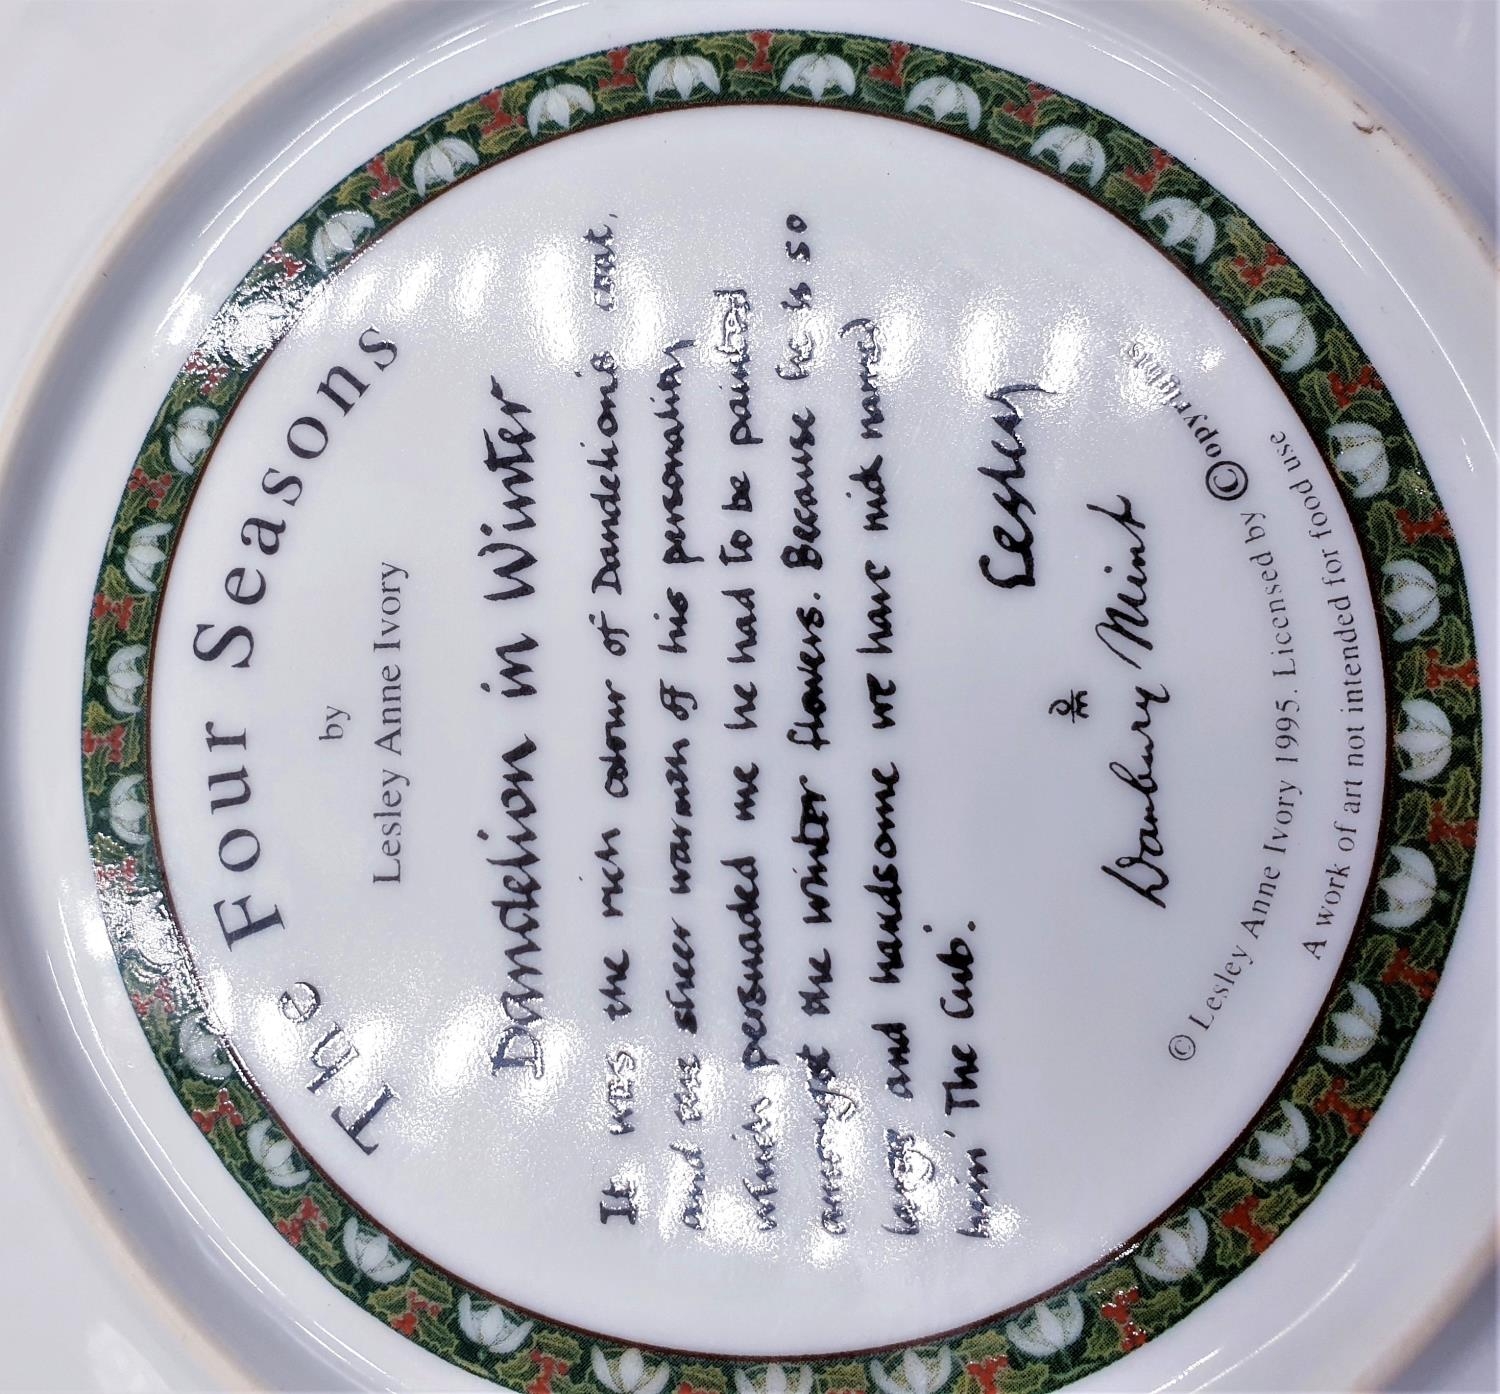 The Four Seasons
by
Lesley Anne Ivory
Dandelion in Winter
It was the rich colour of Dandelion's coat,
and the sheer warmth of his personality
which persuaded me he had to be painted
amongst the winter flowers. Because he is so
large and handsome we have nick named
him 'The Cub'.
Lesley
DM
Danbury Mint
© Lesley Anne Ivory 1995. Licensed by ©opyrights
A work of art not intended for food use